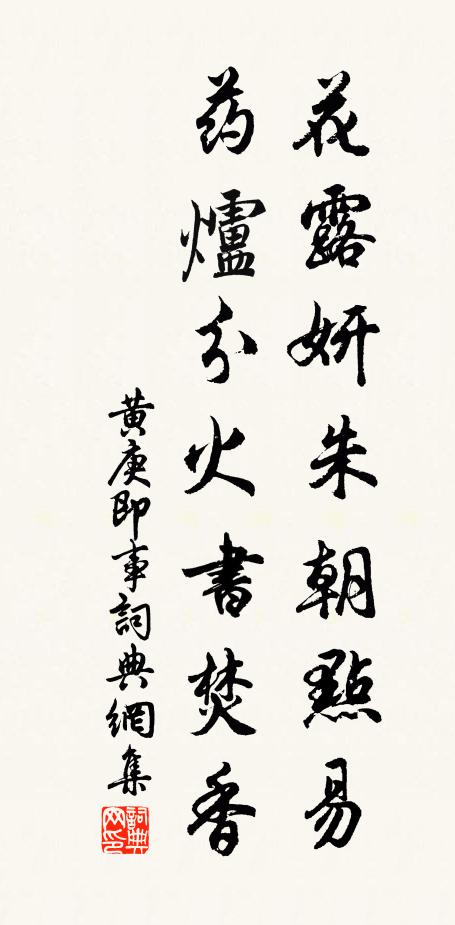 花露妍朱朝點易
药爐分火書焚香
黄庚即事詞典網集
詞典
网印